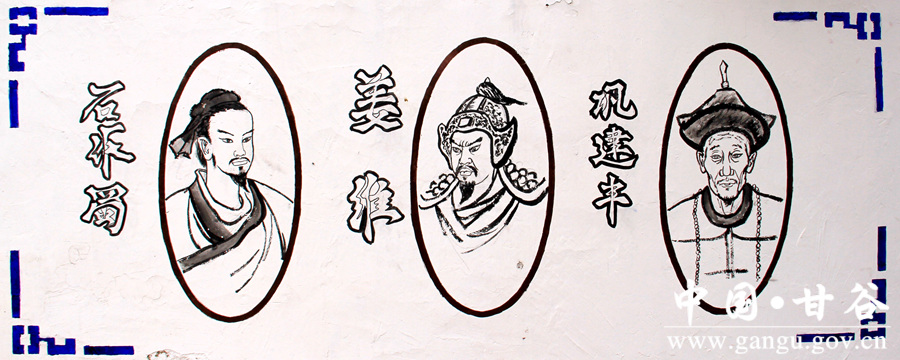 石作蜀
姜维
巩建丰
中国·甘谷
www.gangu.gov.cn